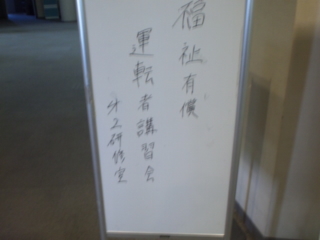 福祉有償
運転者講習会
第2研修室